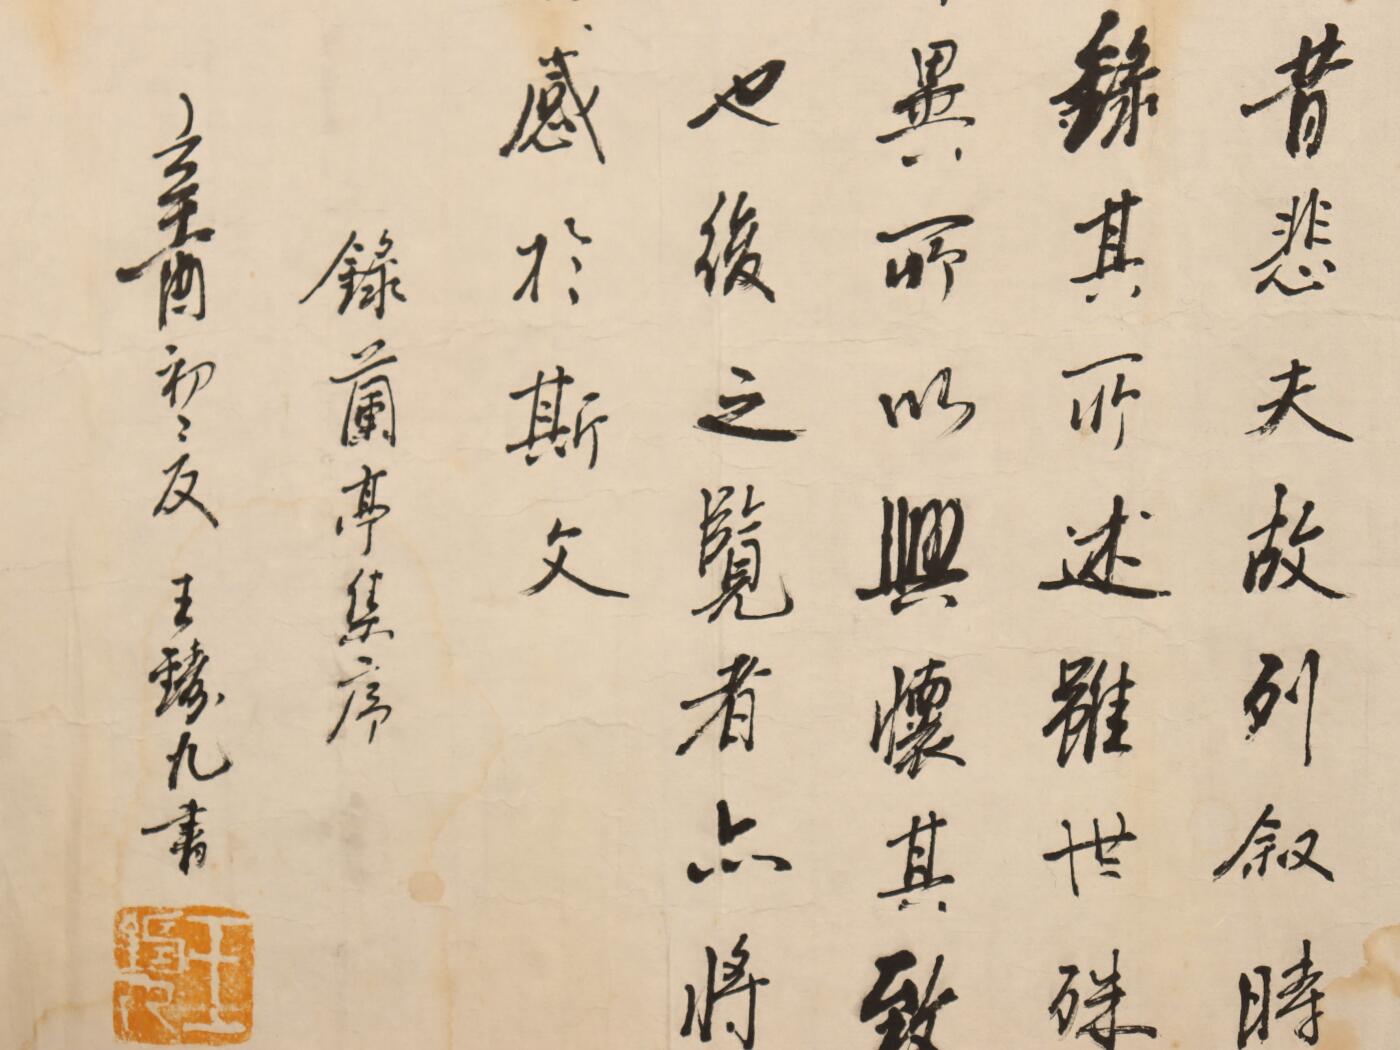 昔悲夫故列叙時
錄其所述雖世殊
異所以興懷其致
也後之覽者亦将
感於斯文
錄蘭亭集序
辛酉初夏 王臻九書